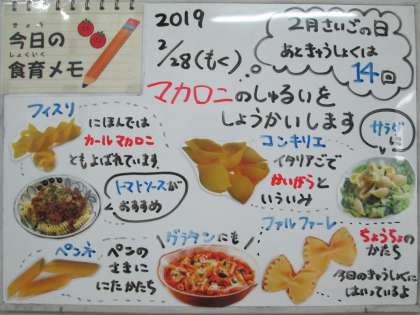 きょう
今日の
しょくいく
食育メモ
2019
2/28(もく)
2月さいごの日
あときゅうしょくは
14回
マカロニのしゅるいを
しょうかいします
フィスリ
にほんでは
カールマカロニ
ともよばれています
トマトソースが
おすすめ
コンキリエ
イタリアごで
かいがらと
いういみ
サラダ
ペンネ
ペンの
さきに
にたかたち
グラタンにも
ファルファーレ
ちょうちょの
かたち
今日のきゅうしょくに
はいっているよ